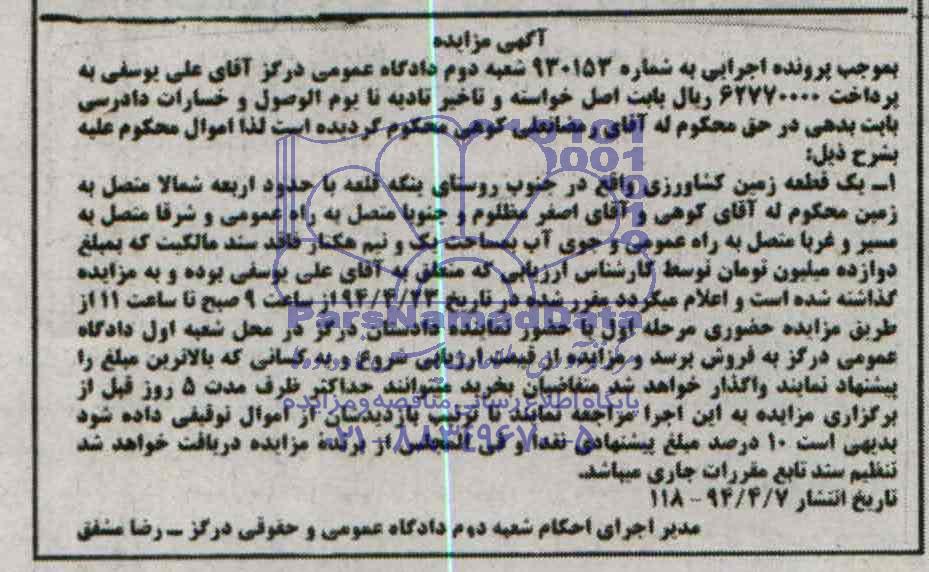 آگهی مزایده
بموجب پرونده اجرایی به شماره ۹۳۰۱۵۳ شعبه دوم دادگاه عمومی درگز آقای علی یوسفی به
پرداخت ۶۲۷۷۰۰۰۰ ریال بابت اصل خواسته و تاخیر تادیه تا یوم الوصول و خسارات دادرسی
بابت بدهی در حق محکوم له آقای رمضانعلی کوهی محکوم گردیده است لذا اموال محکوم علیه
بشرح ذیل:
۱ــ یک قطعه زمین کشاورزی واقع در جنوب روستای ینکه قلعه با حدود اربعه شمالا متصل به
زمین محکوم له آقای کوهی و آقای اصغر مظلوم و جنوبا متصل به راه عمومی و شرقا متصل به
مسیر و غربا متصل به راه عمومی و جوی آب بمساحت یک و نیم هکتار فاقد سند مالکیت که بمبلغ
دوازده میلیون تومان توسط کارشناس ارزیابی که متعلق به آقای علی یوسفی بوده و به مزایده
گذاشته شده است و اعلام میگردد مقرر شده در تاریخ ۹۴/۴/۲۳ از ساعت ۹ صبح تا ساعت ۱۱ از
طریق مزایده حضوری مرحله اول با حضور نماینده دادستان درگز در محل شعبه اول دادگاه
عمومی درگز به فروش برسد و مزایده از قیمت ارزیابی شروع و به کسانی که بالاترین مبلغ را
پیشنهاد نمایند واگذار خواهد شد متقاضیان بخرید میتوانند حداکثر ظرف مدت ۵ روز قبل از
برگزاری مزایده به این اجرا مراجعه نمایند تا ترتیب بازدیدشان از اموال توقیفی داده شود
بدیهی است ۱۰ درصد مبلغ پیشنهادی نقدا و فی المجلس از برندهٔ مزایده دریافت خواهد شد
تنظیم سند تابع مقررات جاری میباشد.
تاریخ انتشار ۹۴/۴/۷ - ۱۱۸
مدیر اجرای احکام شعبه دوم دادگاه عمومی و حقوقی درگز ــ رضا مشفق
ParsNamadData
پایگاه اطلاع رسانی مناقصه و مزایده
۰۲۱-۸۸۳۴۹۶۷۰-۵